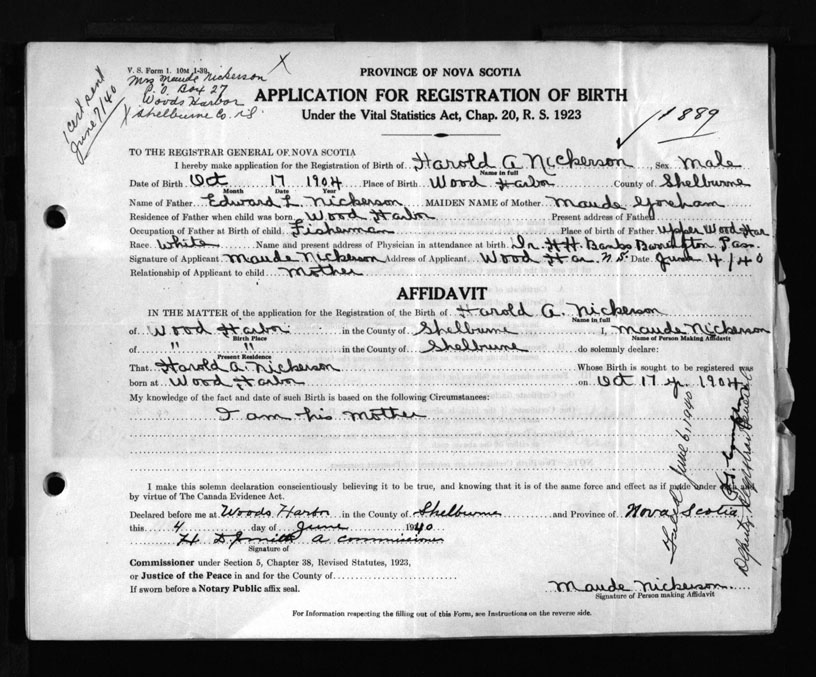 V. S. Form 1. 10M 1-39. X
Mrs Maude Nickerson
P. O. Box 27
Woods Harbor
X Shelburne Co. N.S.
1 cert sent
June 7/40
PROVINCE OF NOVA SCOTIA
APPLICATION FOR REGISTRATION OF BIRTH
Under the Vital Statistics Act, Chap. 20, R. S. 1923
1889
TO THE REGISTRAR GENERAL OF NOVA SCOTIA
I hereby make application for the Registration of Birth of Harold A Nickerson Sex Male
Name in full
Date of Birth Oct 17 1904 Place of Birth Wood Harbor County of Shelburne
Month Date Year
Name of Father Edward L. Nickerson MAIDEN NAME of Mother Maude Goreham
Residence of Father when child was born Wood Harbor Present address of Father
Occupation of Father at Birth of child Fisherman Place of birth of Father Upper Wood Har
Race White Name and present address of Physician in attendance at birth Dr. H.H. Banks Barrington Pass.
Signature of Applicant Maude Nickerson Address of Applicant Wood Har. N.S. Date June 4/40
Relationship of Applicant to child Mother
AFFIDAVIT
IN THE MATTER of the application for the Registration of the Birth of Harold A. Nickerson
Name in full
of Wood Harbor in the County of Shelburne I, Maude Nickerson
Birth Place Name of Person Making Affidavit
of " " in the County of Shelburne do solemnly declare:
Present Residence
That Harold A. Nickerson Whose Birth is sought to be registered was
born at Wood Harbor on Oct 17 1904
My knowledge of the fact and date of such Birth is based on the following Circumstances:
I am his Mother
I make this solemn declaration conscientiously believing it to be true, and knowing that it is of the same force and effect as if made under oath and
by virtue of The Canada Evidence Act.
Declared before me at Woods Harbor in the County of Shelburne and Province of Nova Scotia
this 4 day of June 1940
H D Smith A Commissioner
Signature of
Commissioner under Section 5, Chapter 38, Revised Statutes, 1923,
or Justice of the Peace in and for the County of
If sworn before a Notary Public affix seal.
Maude Nickerson
Signature of Person making Affidavit
For Information respecting the filling out of this Form, see Instructions on the reverse side.
Filed June 6, 1940
Deputy Registrar General